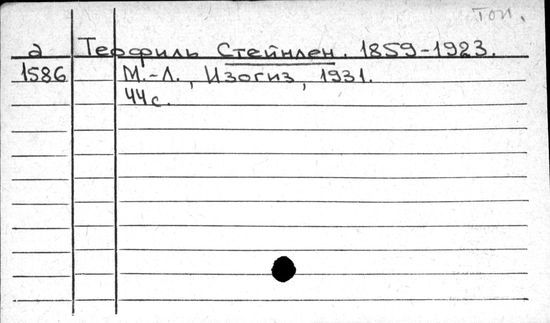 топ.
д Теофиль Стейнлен. 1859-1923.
1586 М.-Л., Изогиз, 1931.
44с.